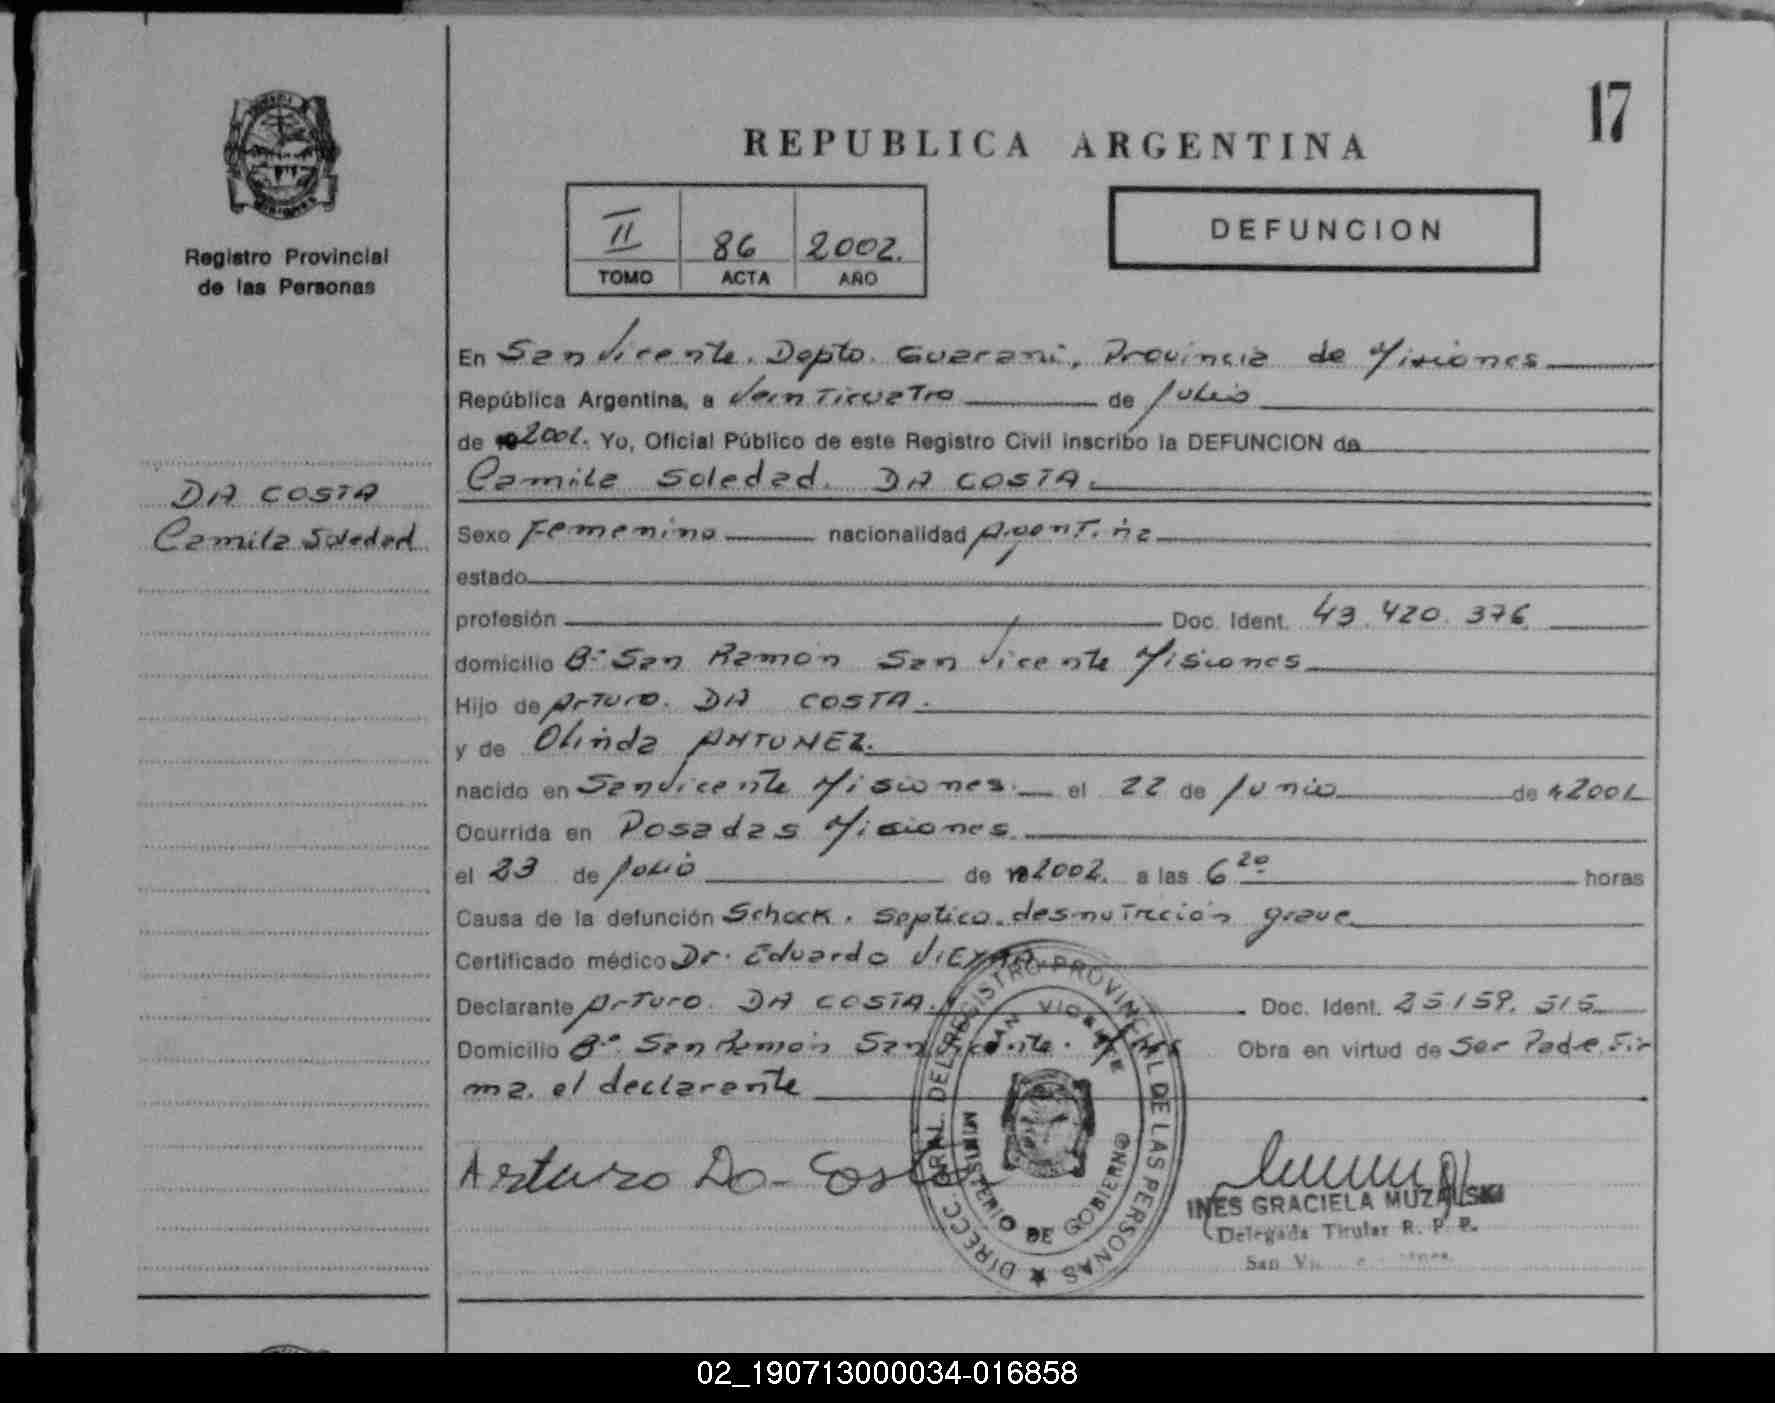 17
REPUBLICA ARGENTINA
Registro Provincial
de las Personas
II 86 2002.
TOMO ACTA AÑO
DEFUNCION
DA COSTA
Camila Soledad
En San Vicente. Depto. Guarani, Provincia de Misiones
República Argentina, a Veinticuatro de Julio
de 2002. Yo, Oficial Público de este Registro Civil inscribo la DEFUNCION de
Camila Soledad. DA COSTA.
Sexo Femenino nacionalidad Argentina
estado
profesión Doc. Ident. 43.420.376
domicilio Bº San Ramón San Vicente Misiones
Hijo de Arturo. DA COSTA.
y de Olinda ANTUNEZ.
nacido en San Vicente Misiones. el 22 de Junio de
Ocurrida en Posadas Misiones
el 23 de Julio de 2002. a las 6 20 horas
Causa de la defunción Schock. septico. desnutrición grave
Certificado médico Dr. Eduardo VIEYRA
Declarante Arturo. DA COSTA. Doc. Ident. 25159.515
Domicilio Bº San Ramón San Vicente. Mnes Obra en virtud de Ser Padre. Fir
ma. el declarante
Arturo Da Costa
DIRECC. GRAL. DEL REGISTRO PROVINCIAL DE LAS PERSONAS
SAN VICENTE
MINISTERIO DE GOBIERNO
INES GRACIELA MUZALSKI
Delegada Titular R. P. P.
San
02_190713000034-016858